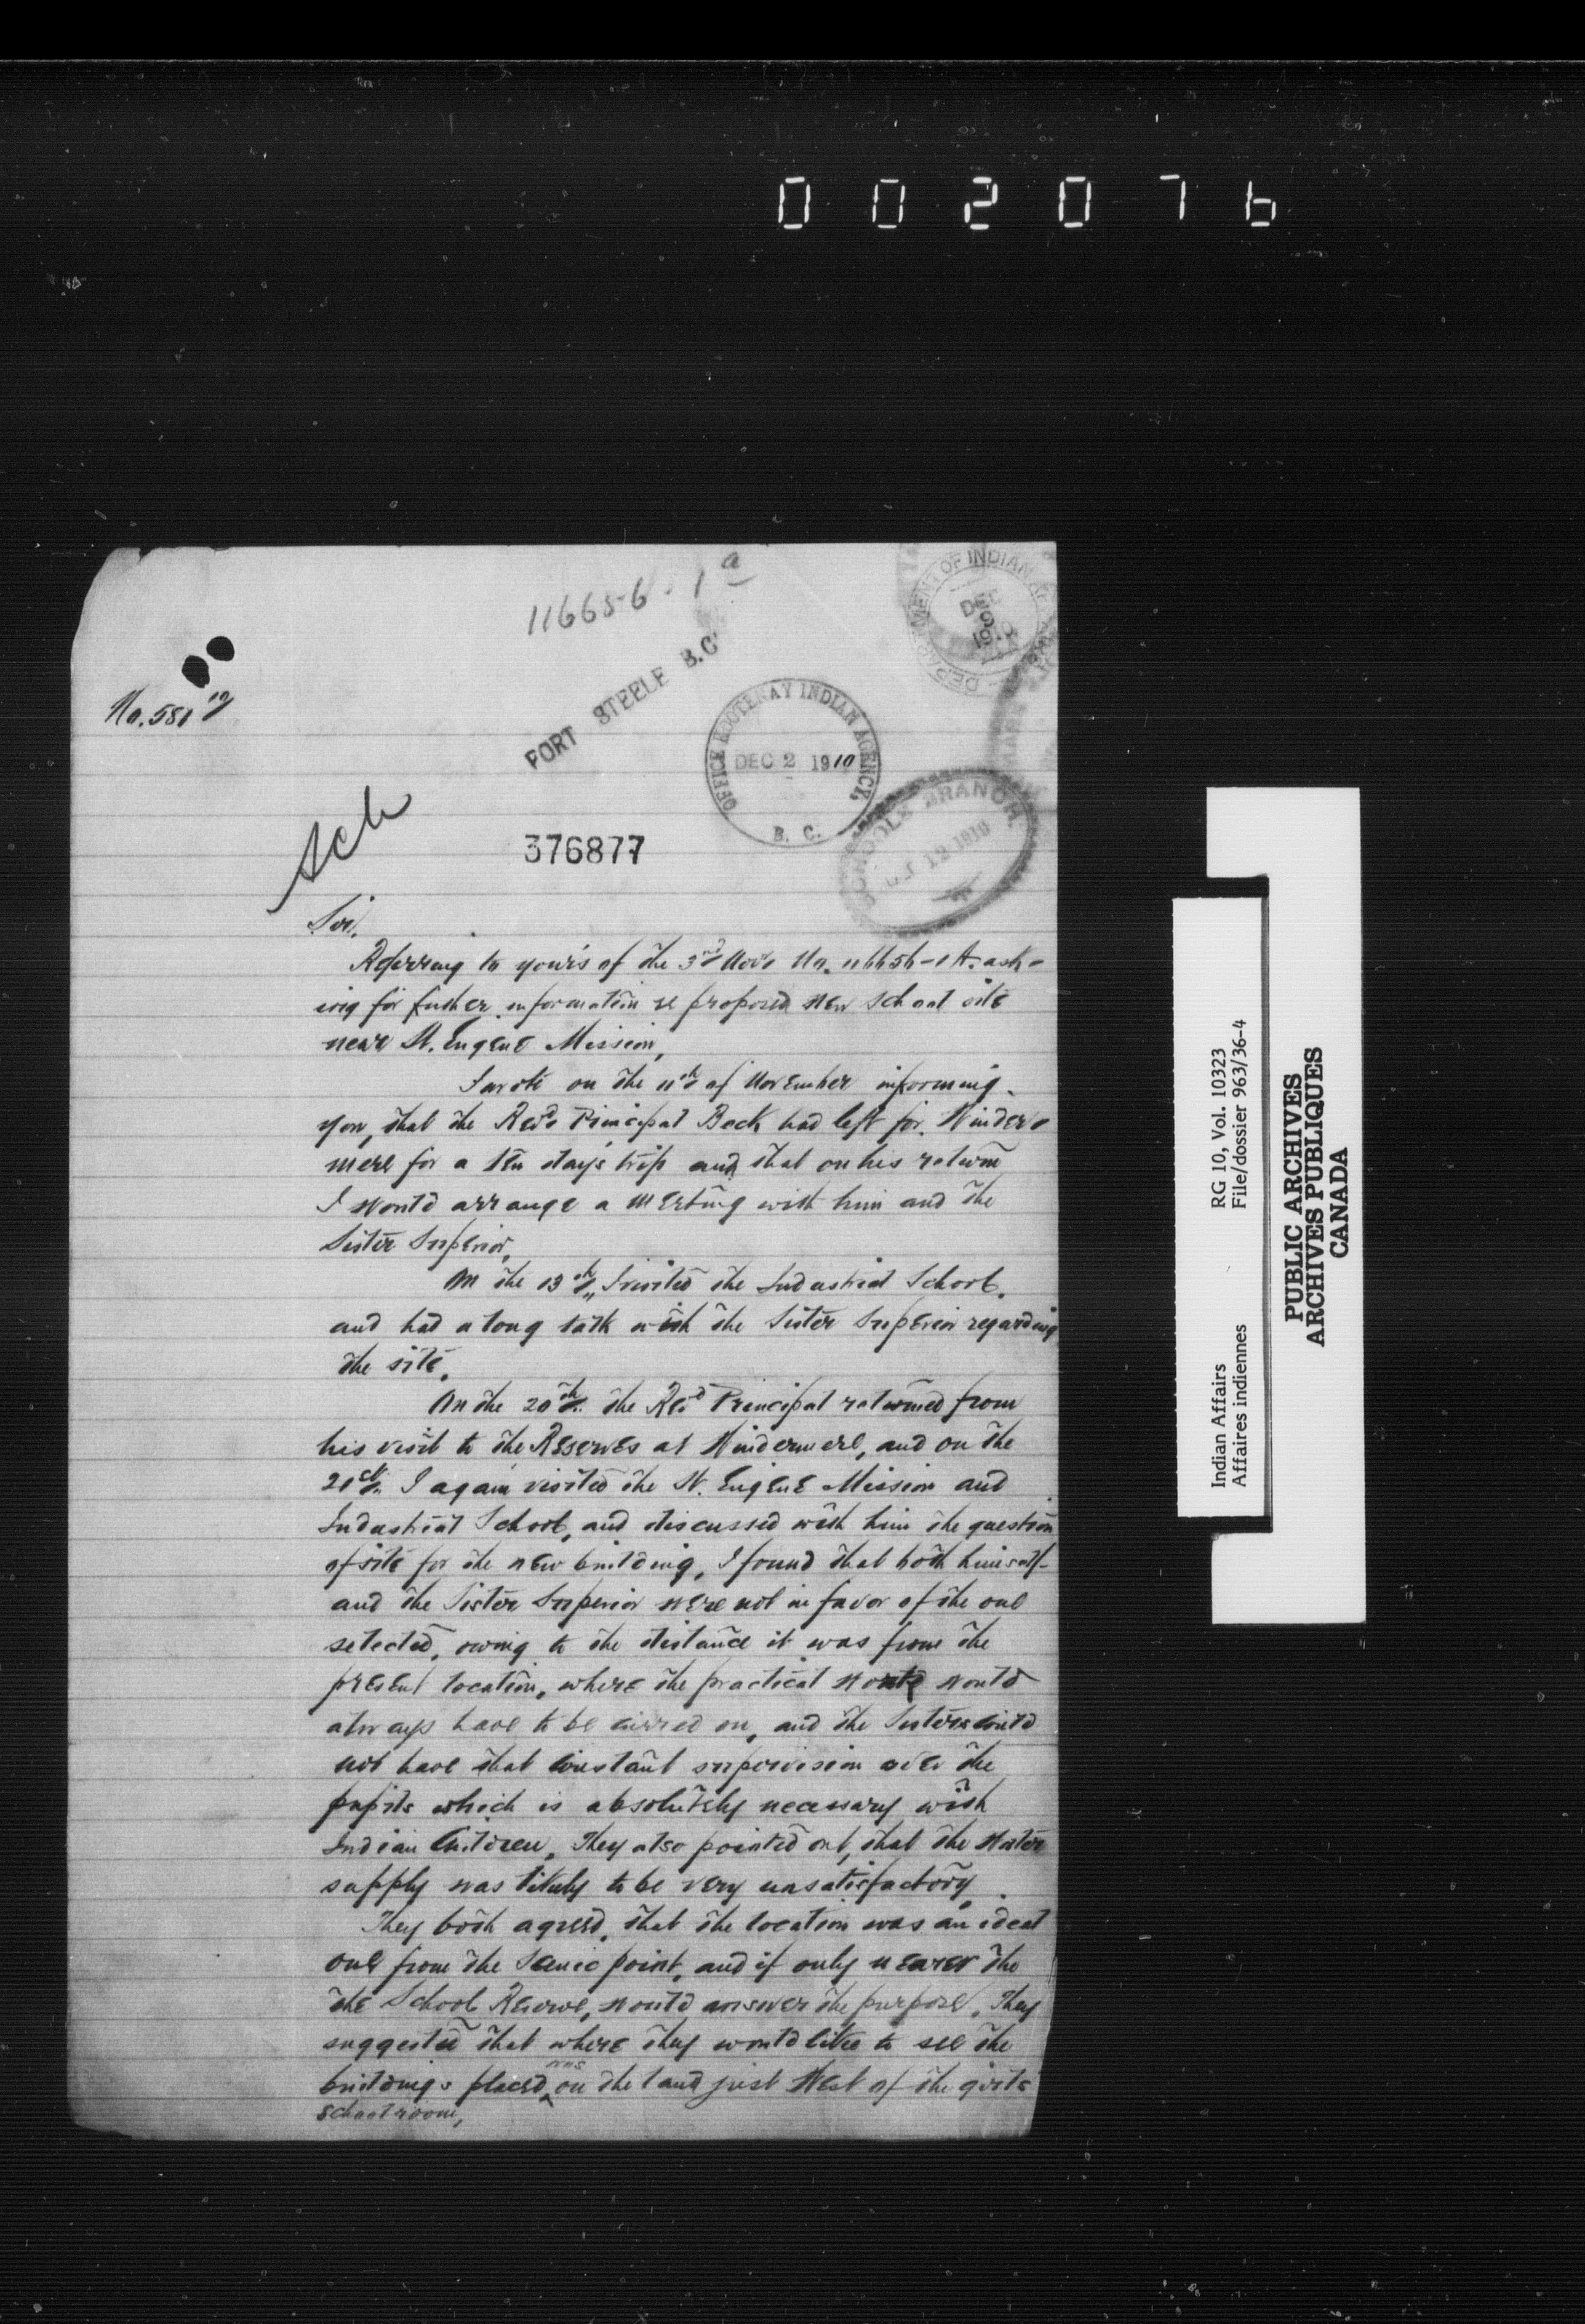 002076
116656-1a
DEPARTMENT OF INDIAN
DEC
9
1910
No. 581
FORT STEELE B.C.
OFFICE KOOTENAY INDIAN AGENCY,
DEC 2 1910
B. C.
SCHOOLS BRANCH
12 1910
Sch
376877
Sir,
Referring to yours of the 3rd Nov. No. 116656-1A. ask-
ing for futher information re proposed new school site
near St. Eugene Mission,
I wrote on the 11th of November informing
you, that the Revd. Principal Beck had left for Winder-
mere for a ten day's trip and that on his return
I would arrange a meeting with him and the
Sister Superior,
On the 13th, I visited the Industrial School,
and had a long talk with the Sister Superior regarding
the site.
On the 20th. the Revd Principal returned from
his visit to the Reserves at Windermere, and on the
21st. I again visited the St. Eugene Mission and
Industrial School, and discussed with him the question
of site for the new building, I found that both himself
and the Sister Superior were not in favor of the one
selected, owing to the distance it was from the
present location, where the practical work would
always have to be carred on, and the Sisters could
not have that constant supervision over the
pupils which is absolutely necessary with
Indian Children, They also pointed out, that the Water
supply was likely to be very unsatisfactory.
They both agreed, that the location was an ideal
one from the scenic point, and if only nearer the
the School Reserve, would answer the purpose. They
suggested that where they would like to see the
buildings placed was on the land just West of the girls'
school room,
Indian Affairs RG 10, Vol. 10323
Affaires indiennes File/dossier 963/36-4
PUBLIC ARCHIVES
ARCHIVES PUBLIQUES
CANADA